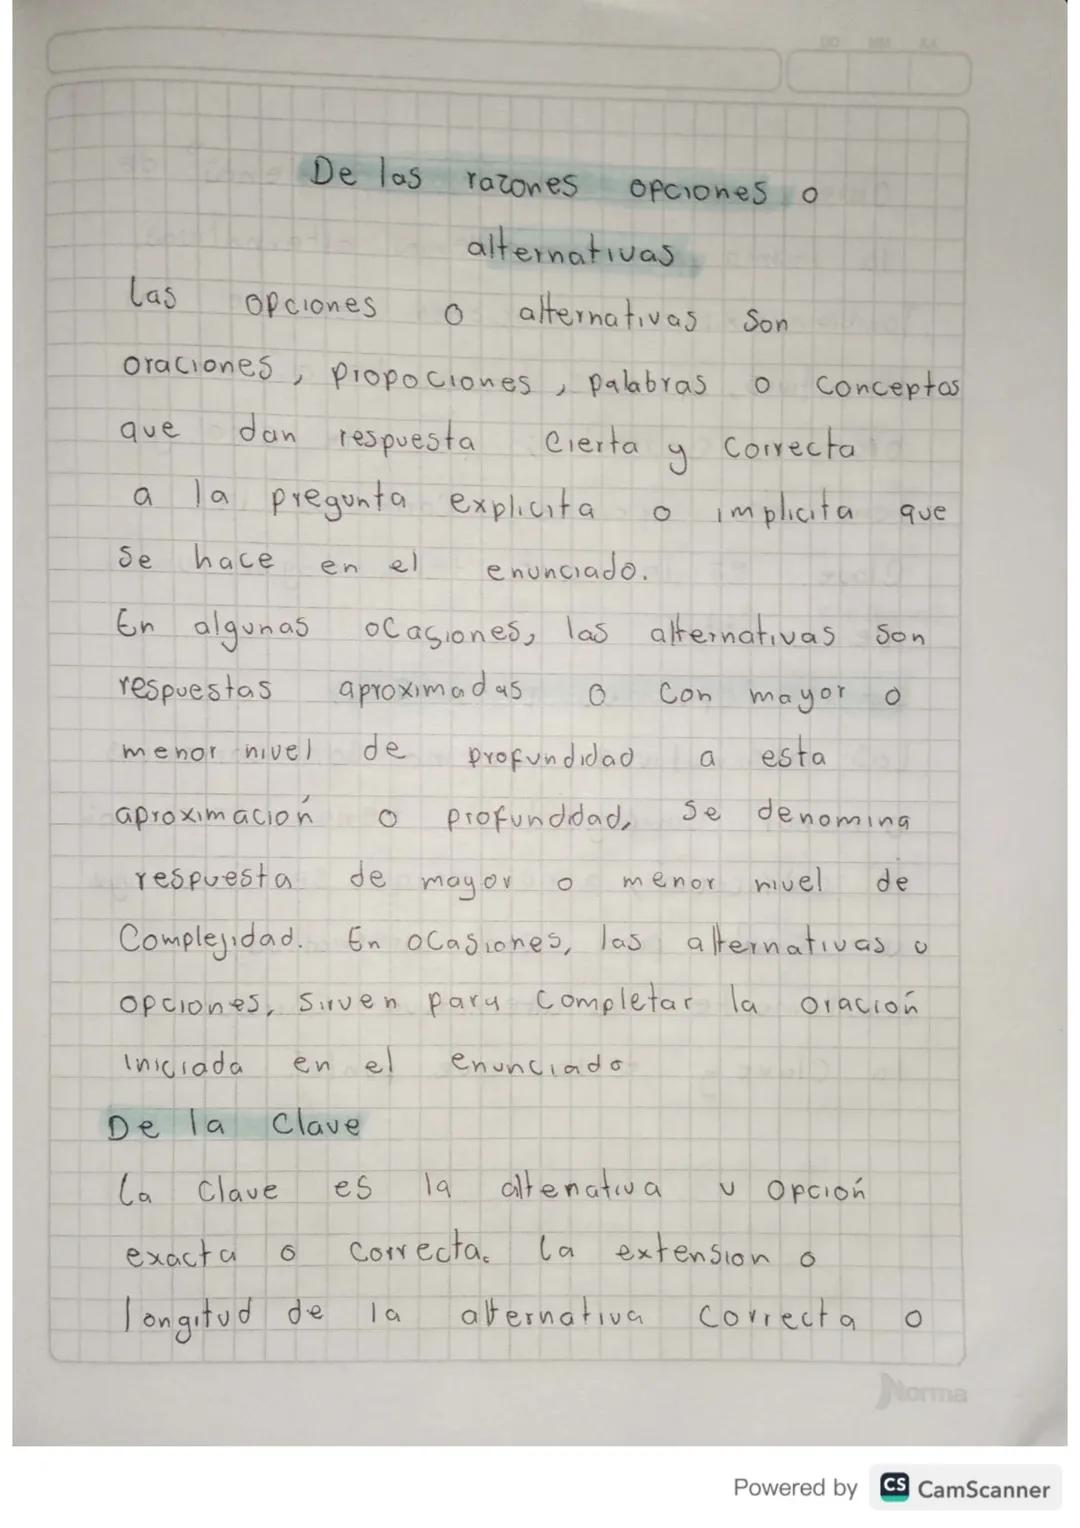 DD MM AA
De las razones opciones o
alternativas
Las opciones o alternativas son
oraciones, propociones, palabras o conceptos
que dan respuesta cierta y correcta
a la pregunta explicita o implicita que
se hace en el enunciado.
En algunas ocasiones, las alternativas son
respuestas aproximadas o con mayor o
menor nivel de profundidad a esta
aproximación o profunddad, se denomina
respuesta de mayor o menor nivel de
Complejidad. En ocasiones, las alternativas u
opciones, sirven para completar la oración
iniciada en el enunciado
De la Clave
La Clave es la altenativa u opción
exacta o correcta. La extension o
longitud de la alternativa correcta o
Norma
Powered by CS CamScanner